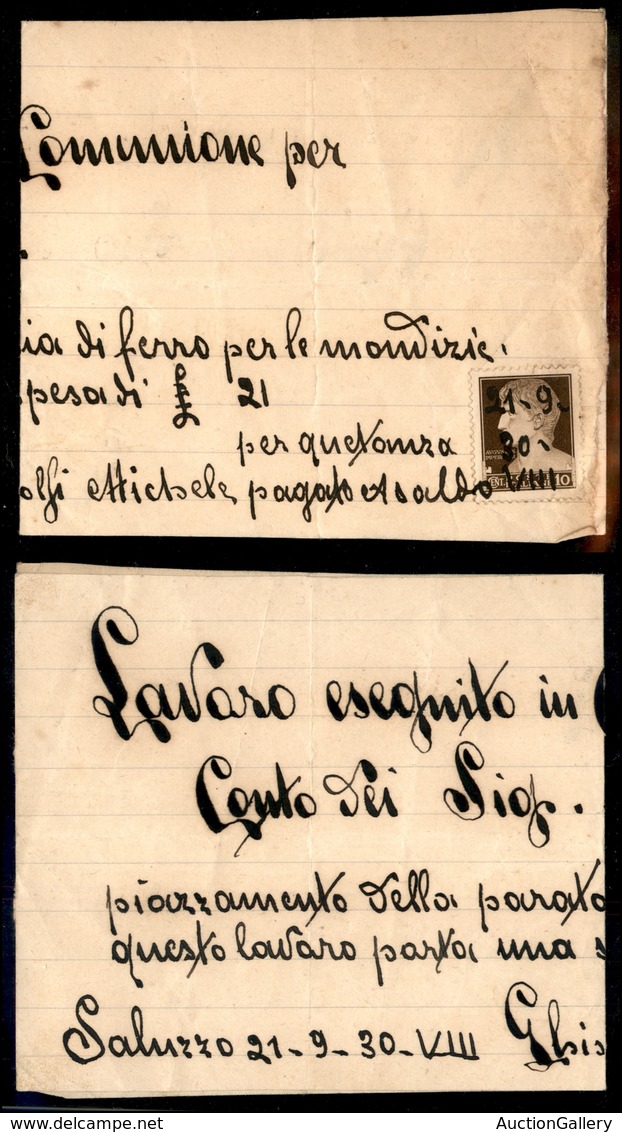 Comunione per
ia di ferro per le mondizie.
pesa di £ 21
per quetanza
olfi Michele pagato et saldo
21-9-
30-
VIII
10
Lavoro esequito in C
Conto dei Sig.
piazzamento della parato
questo lavoro porta una s
Saluzzo 21-9-30-VIII Ghis
AuctionGallery